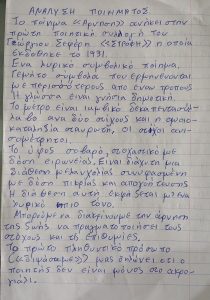 ΑΝΑΛΥΣΗ ΠΟΙΗΜΑΤΟΣ
Το ποίημα «Άρνηση» ανήκει στην
πρώτη ποιητική συλλογή του
Γεώργιου Σεφέρη «ΣΤΡΟΦΗ» η οποία
εκδόθηκε το 1931.
Ένα λυρικό συμβολικό ποίημα.
Γεμάτο σύμβολα που ερμηνεύονται
με περισσότερους από έναν τρόπους
Η γλώσσα είναι γνήσια δημοτική.
Το μέτρο είναι ιαμβικό δεκαπεντασύλλα
βο ανα δύο στίχους και η ομοιο-
καταληξία σταυρωτή, οι στίχοι ανι-
σομέτρητοι.
Το ύφος σοβαρό, στοχαστικό με
δόση ειρωνείας. Είναι διάχυτη μια
διάθεση μελαγχολίας συνυφασμένη
με δόση πικρίας και απογοήτευσης
Η διάθεση αυτή εκφράζεται με ένα
λυρικό ήπιο τόνο.
Μπορούμε να διακρίνουμε την άρνηση
της ζωής να πραγματοποιήσει τους
στόχους και τις επιθυμίες.
Το πρώτο πληθυντικό πρόσωπο
(«διψάσαμε») μας δηλώνει ότι ο
ποιητής δεν είναι μόνος στο ακρο-
γιάλι.